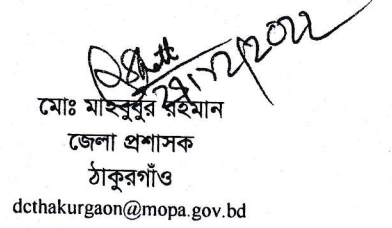 ২৯/১২/২০২২
মোঃ মাহবুবুর রহমান
জেলা প্রশাসক
ঠাকুরগাঁও
dcthakurgaon@mopa.gov.bd